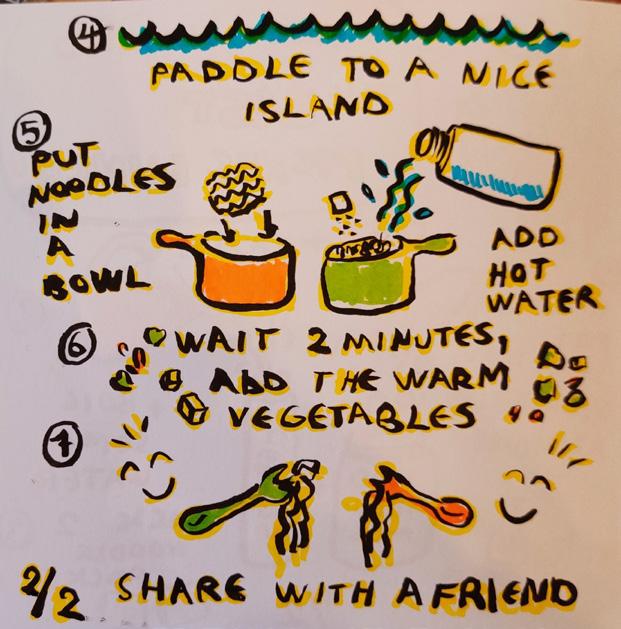 4
PADDLE TO A NICE
ISLAND
5
PUT
NOODLES
IN
A
BOWL
ADD
HOT
WATER
6
WAIT 2 MINUTES,
ADD THE WARM
VEGETABLES
7
2/2 SHARE WITH A FRIEND